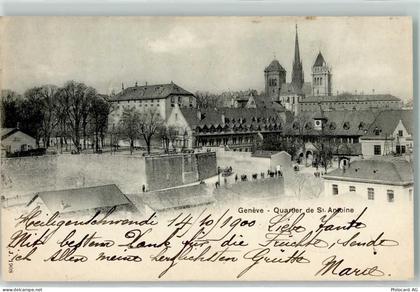 Genève - Quartier de St. Antoine
Heiligenschwendi 14/10 1900. Liebe Tante
Mit bestem Dank für die Früchte, sende
ich Allen meine herzlichsten Grüße
Marie
J.J. 908